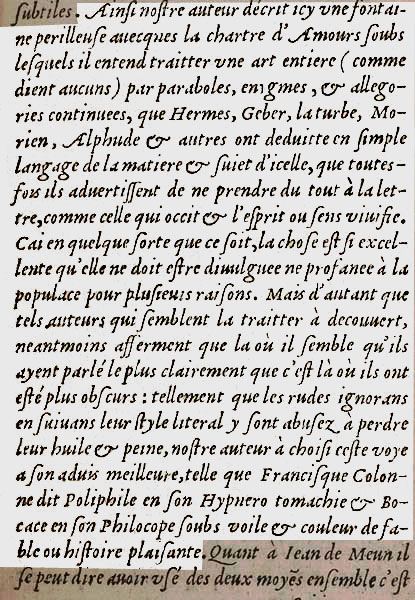 subtiles. Ainsi nostre auteur décrit icy vne fontai-
ne perilleuse auecques la chartre d'Amours soubs
lesquels il entend traitter vne art entiere (comme
dient aucuns) par paraboles, enigmes, & allego-
ries continuees, que Hermes, Geber, la turbe, Mo-
rien, Alphude & autres ont deduitte en simple
langage de la matiere & suiet d'icelle, que toutes-
fois ils aduertissent de ne prendre du tout à la let-
tre, comme celle qui occit & l'esprit ou sens viuifie.
Cai en quelque sorte que ce soit, la chose est si excel-
lente qu'elle ne doit estre diuulguee ne profanee à la
populace pour plusieuis raisons. Mais d'autant que
tels auteurs qui semblent la traitter à decouuert,
neantmoins afferment que la où il semble qu'ils
ayent parlé le plus clairement que c'est là où ils ont
esté plus obscurs : tellement que les rudes ignorans
en suiuans leur style literal y sont abusez à perdre
leur huile & peine, nostre auteur à choisi ceste voye
a son aduis meilleure, telle que Francisque Colon-
ne dit Poliphile en son Hypnero tomachie & Bo-
cace en son Philocope soubs voile & couleur de fa-
ble ou histoire plaisante. Quant à Iean de Meun il
se peut dire auoir vsé des deux moyẽs ensemble c'est